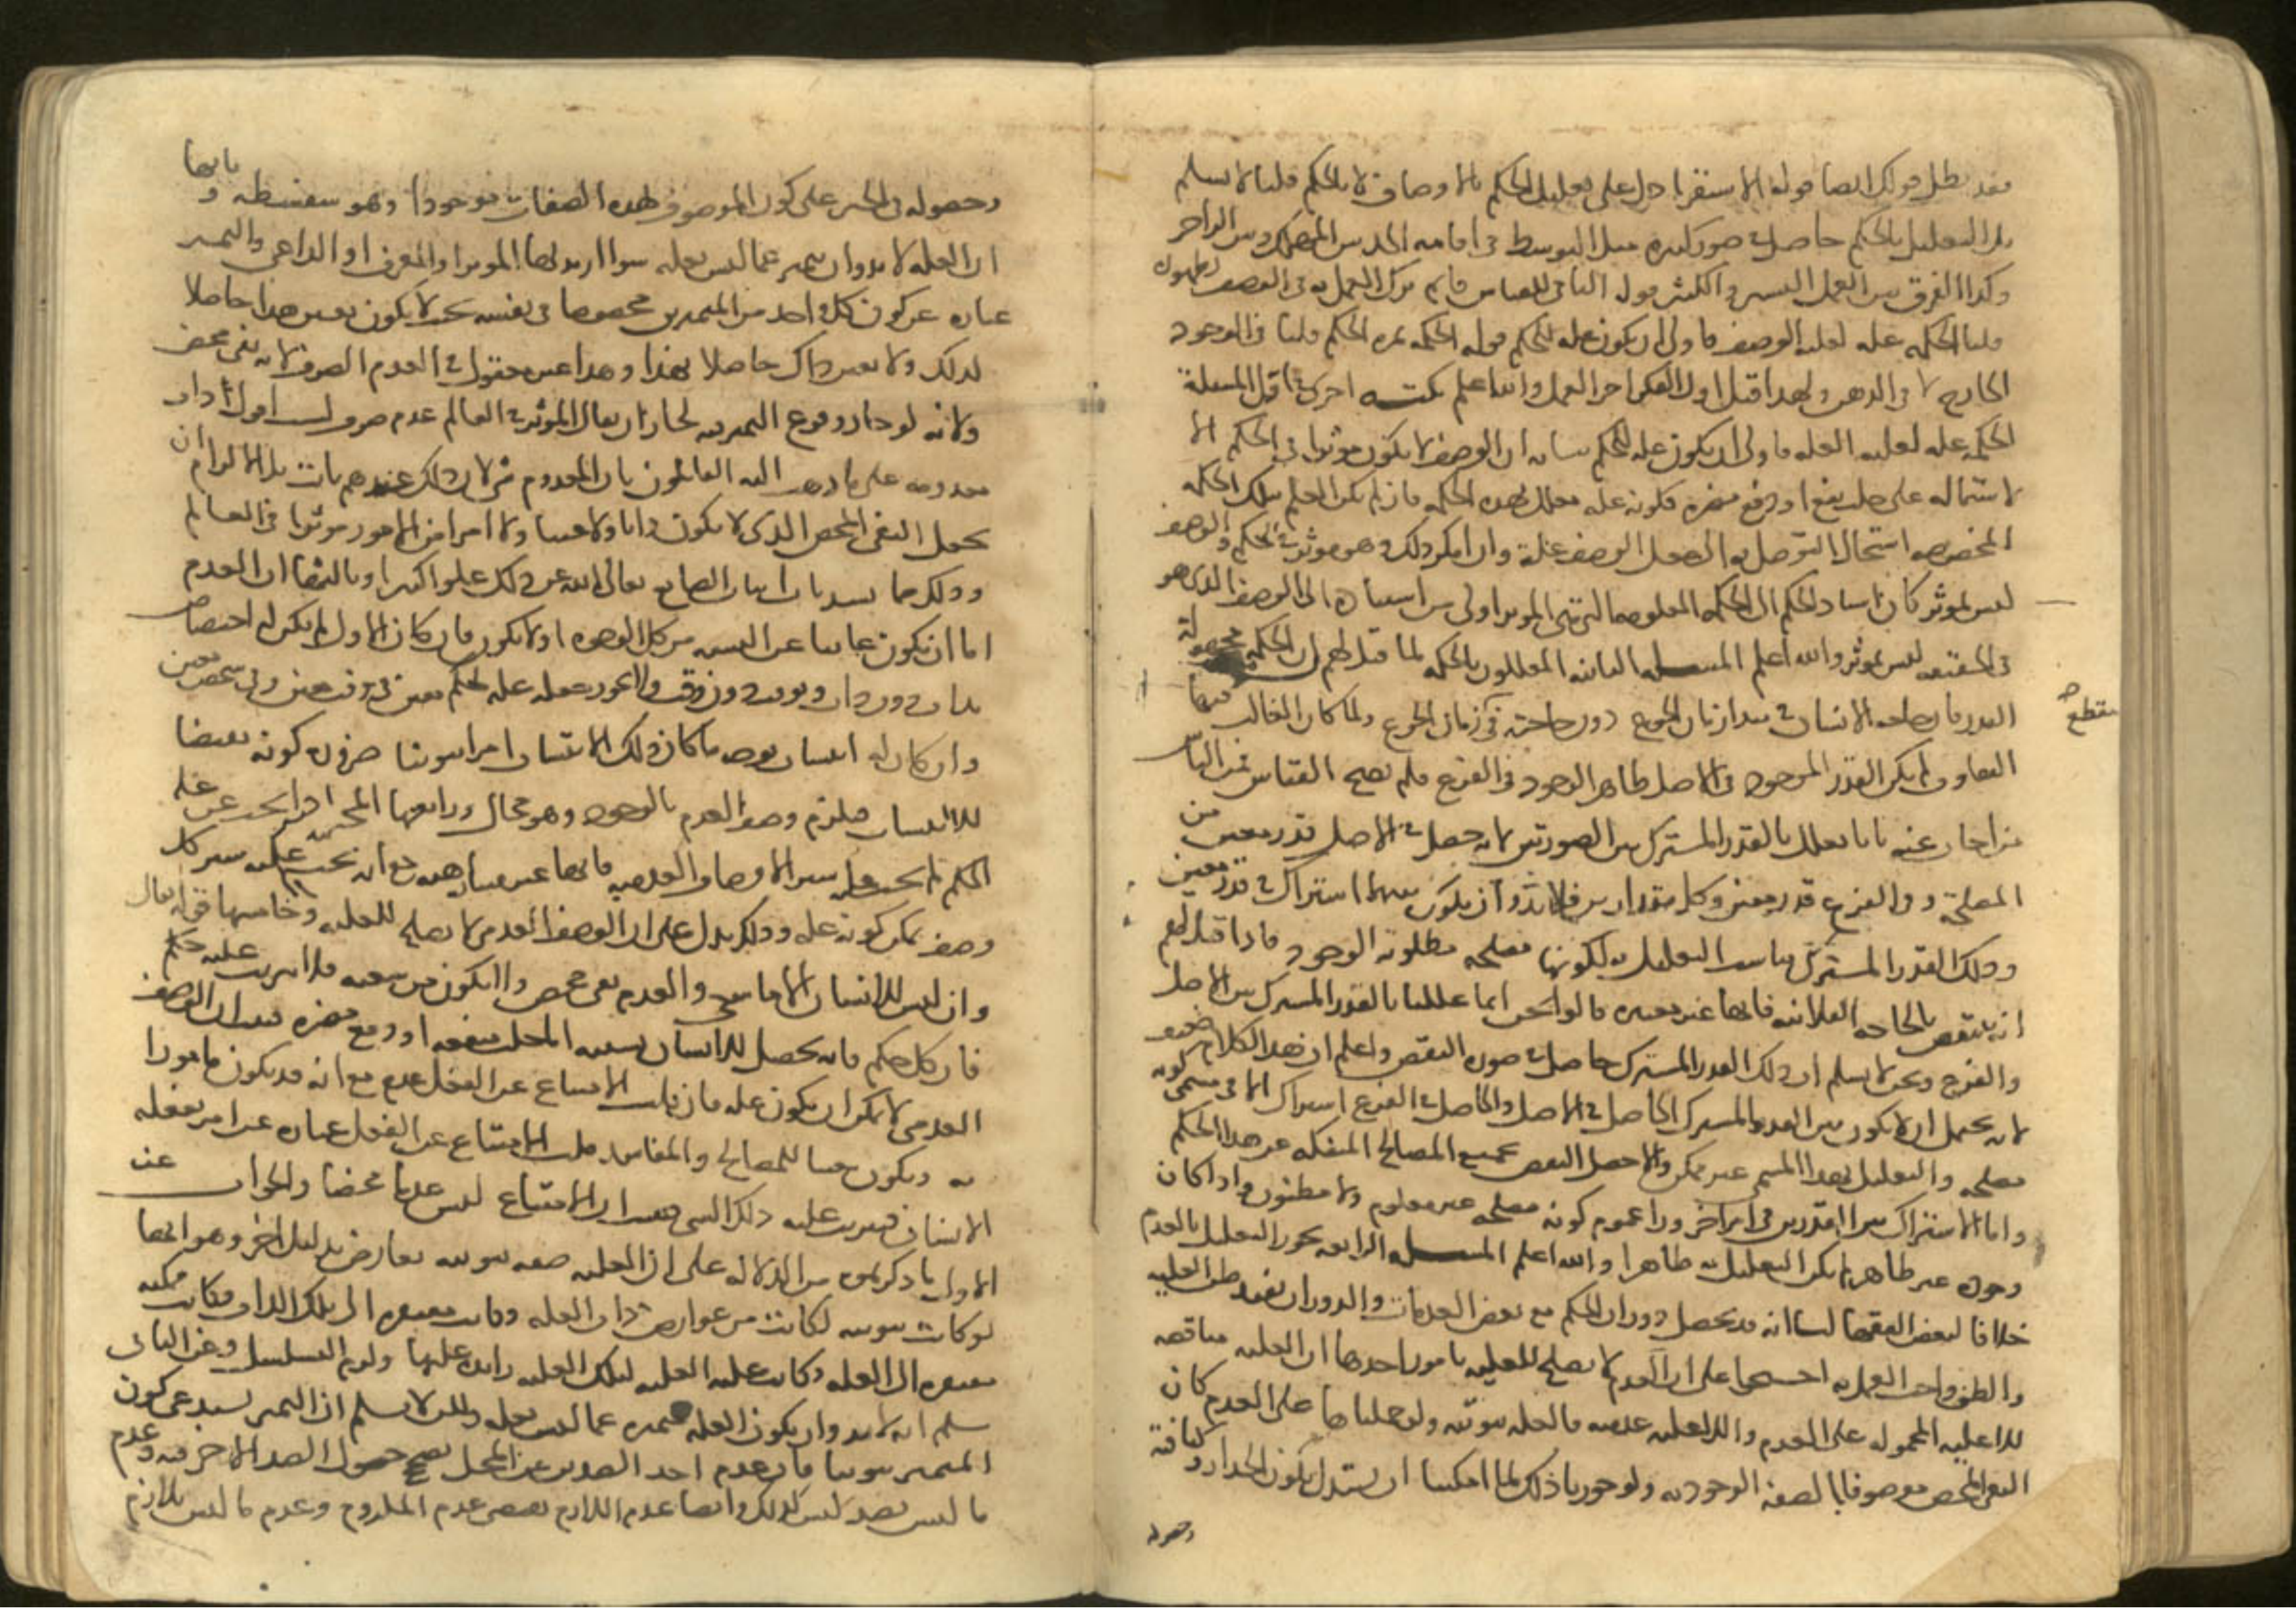 فقد بطل قولك ايضا قوله الاستقرا دل على تعليل الحكم بالاوصاف لا بالحكم قلنا لا نسلم
بل التعليل بالحكم حاصل في صور كثيرة مثل التوسط في اقامة الحد بين المهلك وبين الزاجر
وكذا الفرق بين العمل اليسير والكثير قوله النافي للقياس قايم ترك العمل به في الوصف لظهوره
قلنا الحكمة علة لعلية الوصف فاولى ان يكون علة للحكم قوله الحكمة ثمرة الحكم قلنا في الوجود
الخارجي لا في الذهن ولهذا قيل اول الفكر اخر العمل والله اعلم نكتة اخرى في اقل المسئلة
الحكمة علة لعلية العلة فاولى ان يكون علة للحكم بيانه ان الوصف لا يكون موثرا في الحكم الا
لاشتماله على جلب نفع او دفع مضرة فكونه علة معلل بهذه الحكمة فان لم يكن العلم بتلك الحكمة
المخصوصة استحال التوصل به الى جعل الوصف علة وان امكن ذلك وهو موثر في الحكم والوصف
ليس بموثر كان اسناد الحكم الى الحكمة المعلومة التي هي الموثر اولى من اسناده الى الوصف الذي هو
في الحقيقة ليس بموثر والله اعلم المسئلة الثانية المعللون بالحكمة لما قيل لهم ان الحكمة مجهولة
القدر فان حاجة الانسان في مبدا زمان الجوع دون حاجته في زمان الجوع ولما كان الغالب فيها
مقطع
التفاوت لم يكن القدر الموجود في الاصل ظاهر الوجود في الفرع فلم يصح القياس فمن الناس
من اجاب عنه بانا نعلل بالقدر المشترك بين الصورتين لانه حصل في الاصل قدر معين من
المصلحة وفي الفرع قدر معين وكل مقدارين فلا بد وان يكون بينهما اشتراك في قدر معين
وذلك القدر المشترك يناسب التعليل به لكونها مصلحة مطلوبة الوجود فاذا قيل لهم
انه ينتقض بالحاجة الفلانية فانها غير معتبرة قالوا نحن انما عللنا بالقدر المشترك بين الاصل
والفرع ونحن لا نسلم ان ذلك القدر المشترك حاصل في صورة النقض واعلم ان هذا الكلام ضعيف
لانه يحتمل ان لا يكون بين القدر المشترك الحاصل في الاصل والحاصل في الفرع اشتراك الا في مسمى كونه
مصلحة والتعليل بهذا المسمى غير ممكن والا حصل النقض بجميع المصالح المنفكة عن هذا الحكم
واما الاشتراك بين القدرين في امر اخر ورا عموم كونه مصلحة غير معلوم ولا مظنون واذا كان
وجوده غير ظاهر لم يكن التعليل به ظاهرا والله اعلم المسئلة الرابعة يجوز التعليل بالعدم
خلافا لبعض الفقها لنا انه قد يحصل دوران الحكم مع بعض العدمات والدوران يفيد ظن العلية
والظن واجب العمل به احتجوا على ان العدم لا يصلح للعلية بامور احدها ان العلية مناقضة
للاعلية المحمولة على العدم واللاعلية عدمية فالعلية ثبوتية ولو حملناها على العدم كان
النفي المحض موصوفا بالصفة الوجودية ولو جوزنا ذلك لما امكننا ان نستدل بكون الجدار وكثافته
وحصوله
وحصوله في الحيز على كون الموصوف بهذه الصفات موجودا وهو سفسطة وثانيها
ان العلة لا بد وان تتميز عما ليس بعلة سوا اريد بها الموثر او المعرف او الداعي والتميز
عبارة عن كون كل واحد من المتميزين مخصوصا في نفسه بحيث لا يكون تعين هذا حاصلا
لذلك ولا تعين ذاك حاصلا لهذا وهذا غير معقول في العدم الصرف لانه نفي محض
ولانه لو جاز وقوع التميز فيه لجاز ان يقال الموثر في العالم عدم صرف لست اقول ذات
معدومة على ما ذهب اليه القائلون بان المعدوم شي لان ذلك عندهم ثابت بل الالزام ان
يجعل النفي المحض الذي لا يكون ذاتا ولا عينا ولا امرا من الامور موثرا في العالم
وذلك مما يسد باب اثبات الصانع تعالى الله عن ذلك علوا كبيرا وثالثها ان العدم
اما ان يكون عاريا عن النسبة من كل الوجوه او لا يكون فان كان الاول لم يكن له اختصاص
بذات دون ذات وبوقت دون وقت فلا يجوز جعله علة لحكم معين في وقت معين وفي شخص معين
وان كان له انتساب بوجه ما كان ذلك الانتساب امرا ثبوتيا ضرورة كونه نقيضا
للاانتساب فيلزم وصف العدم بالوجود وهو محال ورابعها المجتهد اذا بحث عن علة
الحكم لم يجب عليه سبر الاوصاف العدمية فانها غير متناهية مع انه يجب عليه سبر كل
وصف يمكن كونه علة وذلك يدل على ان الوصف العدمي لا يصلح للعلية وخامسها قوله تعالى
وان ليس للانسان الا ما سعى والعدم نفي محض فلا يكون من سعيه فلا يترتب عليه حكم
فان كل حكم فانه يحصل للانسان بسببه اما جلب منفعة او دفع مضرة فثبت ان الوصف
العدمي لا يمكن ان يكون علة فان قلت الامتناع عن الفعل عدم مع انه قد يكون مامورا
به ويكون منشا للمصالح والمفاسد قلت الامتناع عن الفعل عبارة عن امر يفعله
الانسان فيترتب عليه ذلك الشي فثبت ان الامتناع ليس عدما محضا والجواب عن
الاول ما ذكرتموه من الدلالة على ان العلية صفة ثبوتية يعارض بدليل اخر وهو انها
لو كانت ثبوتية لكانت من عوارض ذات العلة وكانت مفتقرة الى تلك الذات فكانت ممكنة
مفتقرة الى العلة وكانت علية العلة لتلك العلية زائدة عليها ولزم التسلسل وعن الثاني
نسلم انه لا بد وان يكون العلة متميزة عما ليس بعلة ولكن لا نسلم ان التميز يستدعي كون
المتميز ثبوتيا فان عدم احد الضدين عن المحل يصح حصول الضد الاخر فيه وعدم
ما ليس بضد ليس كذلك وايضا عدم اللازم يقتضي عدم الملزوم وعدم ما ليس بلازم